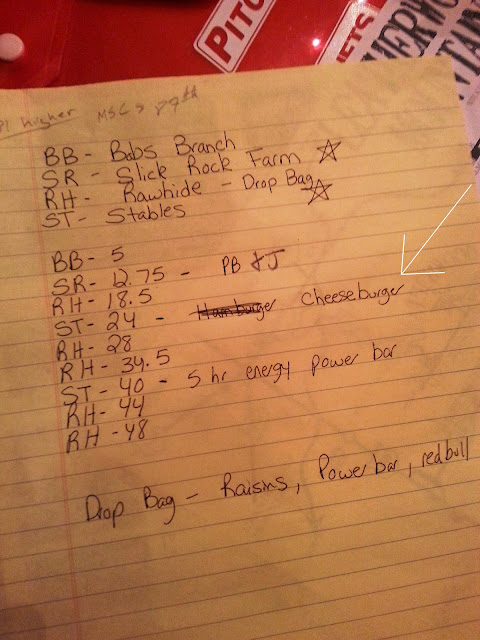 PITCH
higher MSC > pg th
BB - Babs Branch
SR - Slick Rock Farm ☆
RH - Rawhide - Drop Bag ☆
ST - Stables
BB - 5
SR - 12.75 - PB & J
RH - 18.5
ST - 24 - Hamburger Cheeseburger
RH - 28
RH - 34.5
ST - 40 - 5 hr energy power bar
RH - 44
RH - 48
Drop Bag - Raisins, Powerbar, redbull